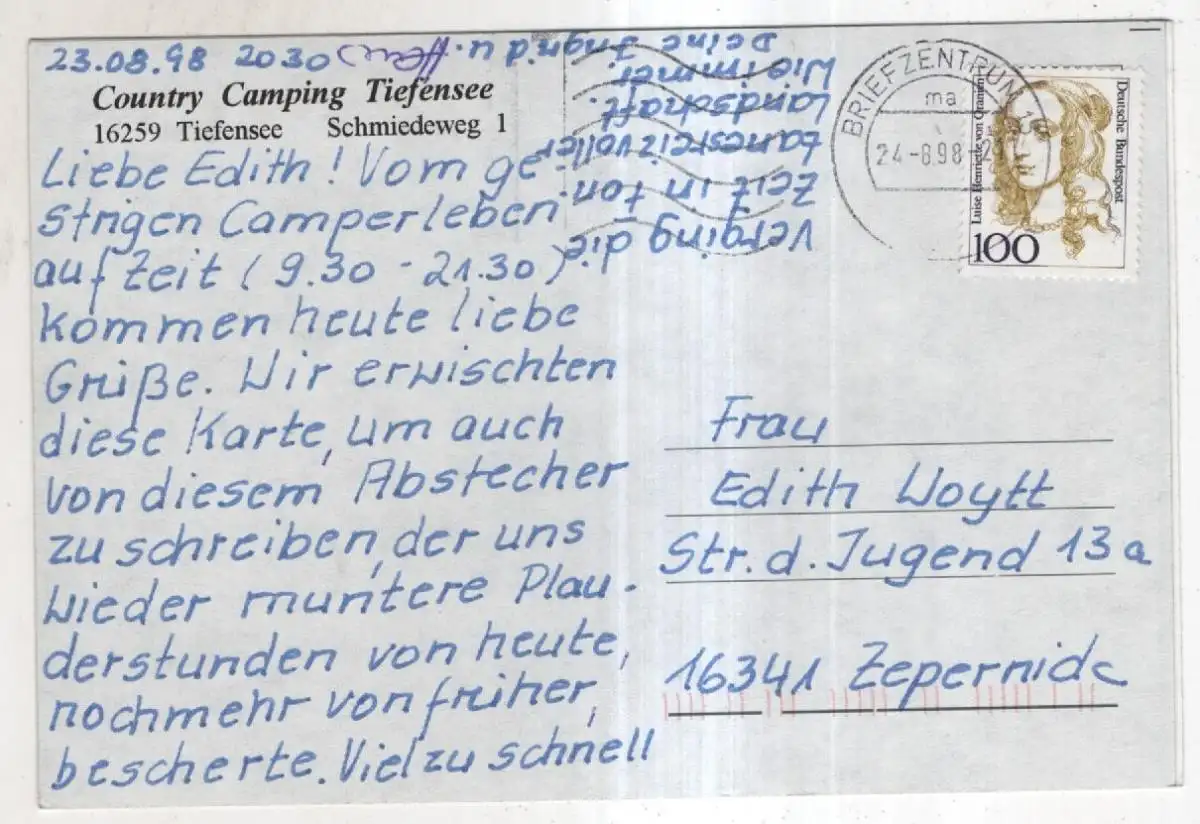 23.08.98 2030
Country Camping Tiefensee
16259 Tiefensee Schmiedeweg 1
Liebe Edith! Vom ge-
strigen Camperleben
auf Zeit (9.30 - 21.30)
kommen heute liebe
Grüße. Wir erwischten
diese Karte, um auch
von diesem Abstecher
zu schreiben, der uns
wieder muntere Plau-
derstunden von heute,
nochmehr von früher,
bescherte. Viel zu schnell
verging die
Zeit in fon-
tanesreizvoller
Landschaft.
Wie immer.
Deine Ingrid u.
BRIEFZENTRUM
ma
24-8.98-
Deutsche Bundespost
Luise Henriette von Oranien
100
Frau
Edith Woytt
Str. d. Jugend 13a
16341 Zepernick